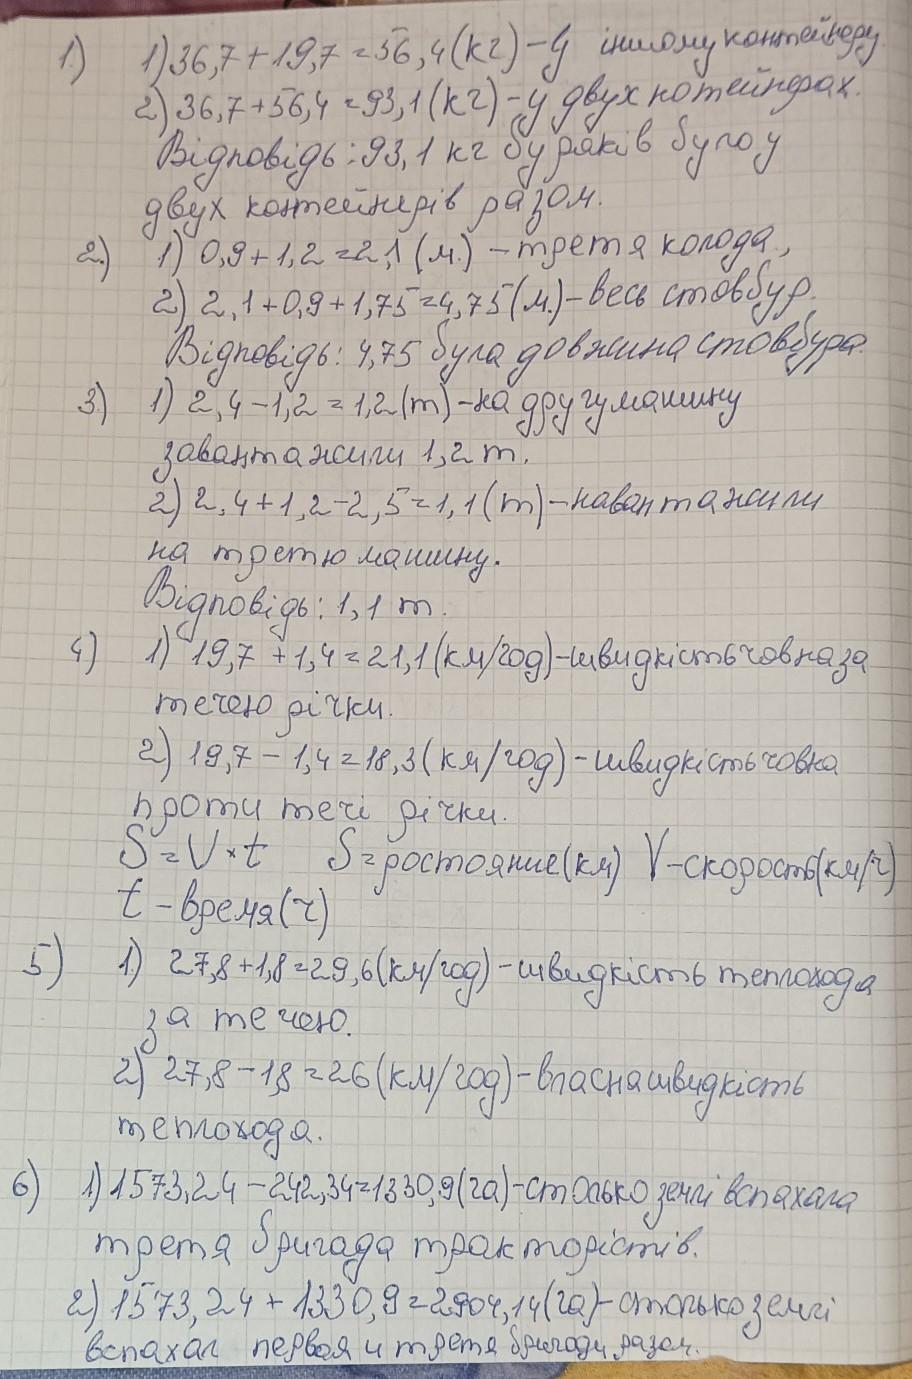 1.) 1) 36,7 + 19,7 = 56,4 (кг) – у іншому контейнеру
2) 36,7 + 56,4 = 93,1 (кг) – у двух котейнрах.
Відповідь: 93,1 кг буряків було у
двух контейнерів разом.
2.) 1) 0,9 + 1,2 = 2,1 (м.) – третя колода,
2) 2,1 + 0,9 + 1,75 = 4,75 (м.) – весь стовбур.
Відповідь: 4,75 була довжина стовбура.
3.) 1) 2,4 – 1,2 = 1,2 (т) – на другу машину
завантажили 1,2 т.
2) 2,4 + 1,2 – 2,5 = 1,1 (т) – навантажили
на третю машину.
Відповідь: 1,1 т.
4) 1) 19,7 + 1,4 = 21,1 (км/год) – швидкість човна за
течею річки.
2) 19,7 – 1,4 = 18,3 (км/год) – швидкість човна
проти течі річки.
S = V × t S = ростояние (км) V – скорость (км/ч)
t – время (ч)
5.) 1.) 27,8 + 1,8 = 29,6 (км/год) – швидкість теплохода
за течею.
2) 27,8 – 1,8 = 26 (км/год) – власна швидкість
теплохода.
6) 1) 1573,24 – 242,34 = 1330,9 (га) – столько землі вспахала
третя бригада трактористів.
2) 1573,24 + 1330,9 = 2904,14 (га) – столько землі
вспахал первая и третя бригади разом.